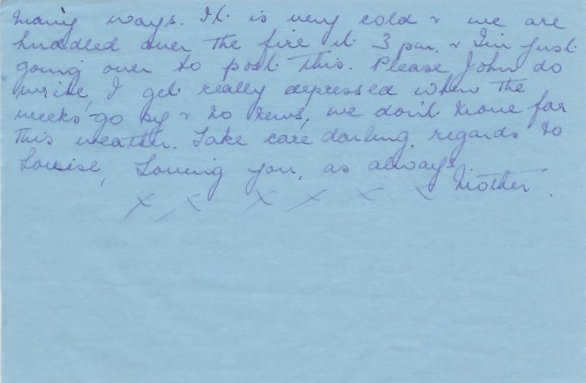 many ways. It is very cold & we are
huddled over the fire it 3 pm. & I'm just
going over to post this. Please John do
write, I get really depressed when the
weeks go by & no news, we don't move far
this weather. Take care darling, regards to
Louise, Loving you, as always
Mother.
x x x x x x